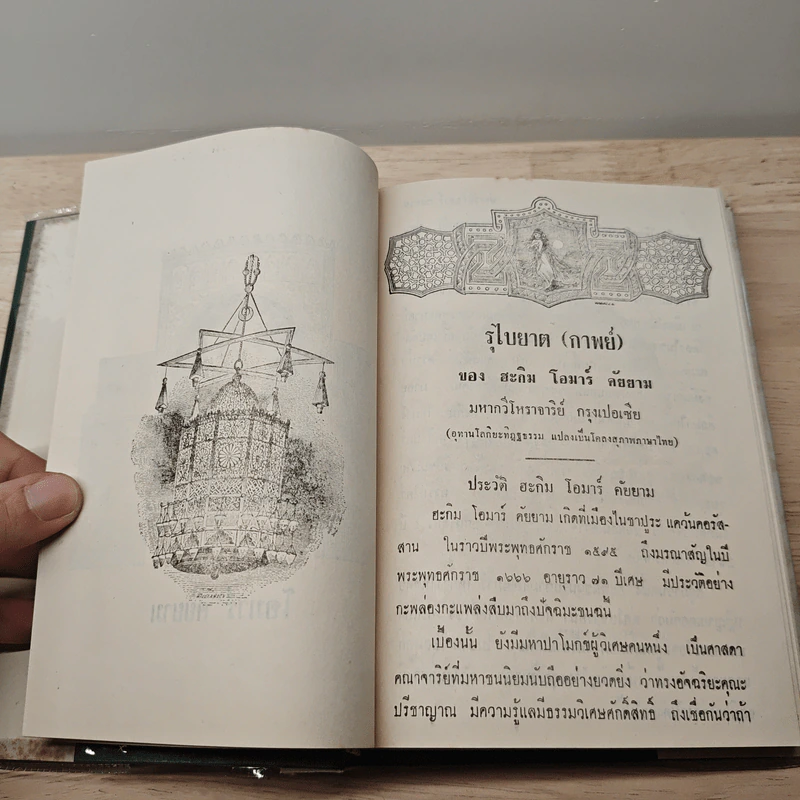 รุไบยาต (กาพย์)
ของ ฮะกิม โอมาร์ คัยยาม
มหากวีโหราจาริย์ กรุงเปอเซีย
(อุทานโลกิยะทิฏฐธรรม แปลงเป็นโคลงสุภาพภาษาไทย)
ประวัติ ฮะกิม โอมาร์ คัยยาม
ฮะกิม โอมาร์ คัยยาม เกิดที่เมืองไนชาปูระ แคว้นคอรัส-
สาน ในราวปีพระพุทธศักราช ๑๕๙๕ ถึงมรณาสัญในปี
พระพุทธศักราช ๑๖๖๖ อายุราว ๗๑ ปีเศษ มีประวัติอย่าง
กะพล่องกะแพล่งสืบมาถึงปัจฉิมะชนฉนี้
เบื้องนั้น ยังมีมหาปาโมกข์ผู้วิเศษคนหนึ่ง เป็นศาสดา
คณาจาริย์ที่มหาชนนิยมนับถืออย่างยวดยิ่ง ว่าทรงอัจฉริยะคุณะ
ปรีชาญาณ มีความรู้แลมีธรรมวิเศษศักดิ์สิทธิ์ ถึงเชื่อกันว่าถ้า